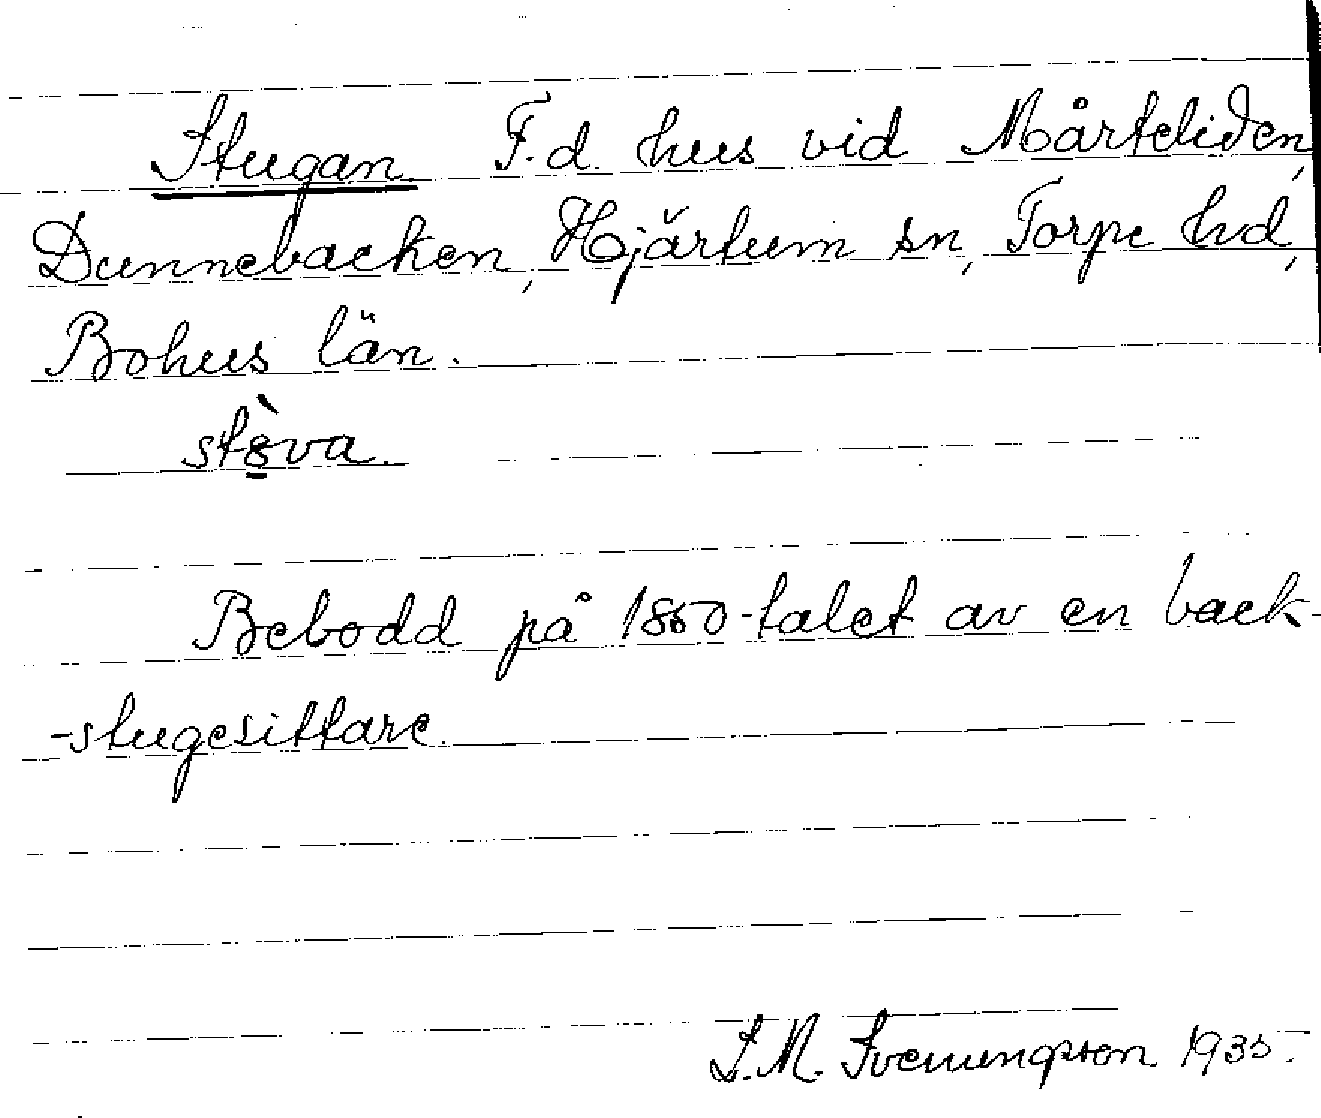 Stugan F.d. hus vid Mårteliden,
Dunnebacken, Hjärtum sn, Torpe hd,
Bohus län.
stòva
Bebodd på 1850-talet av en back-
-stugesittare.
S.M. Svenungsson 1935.